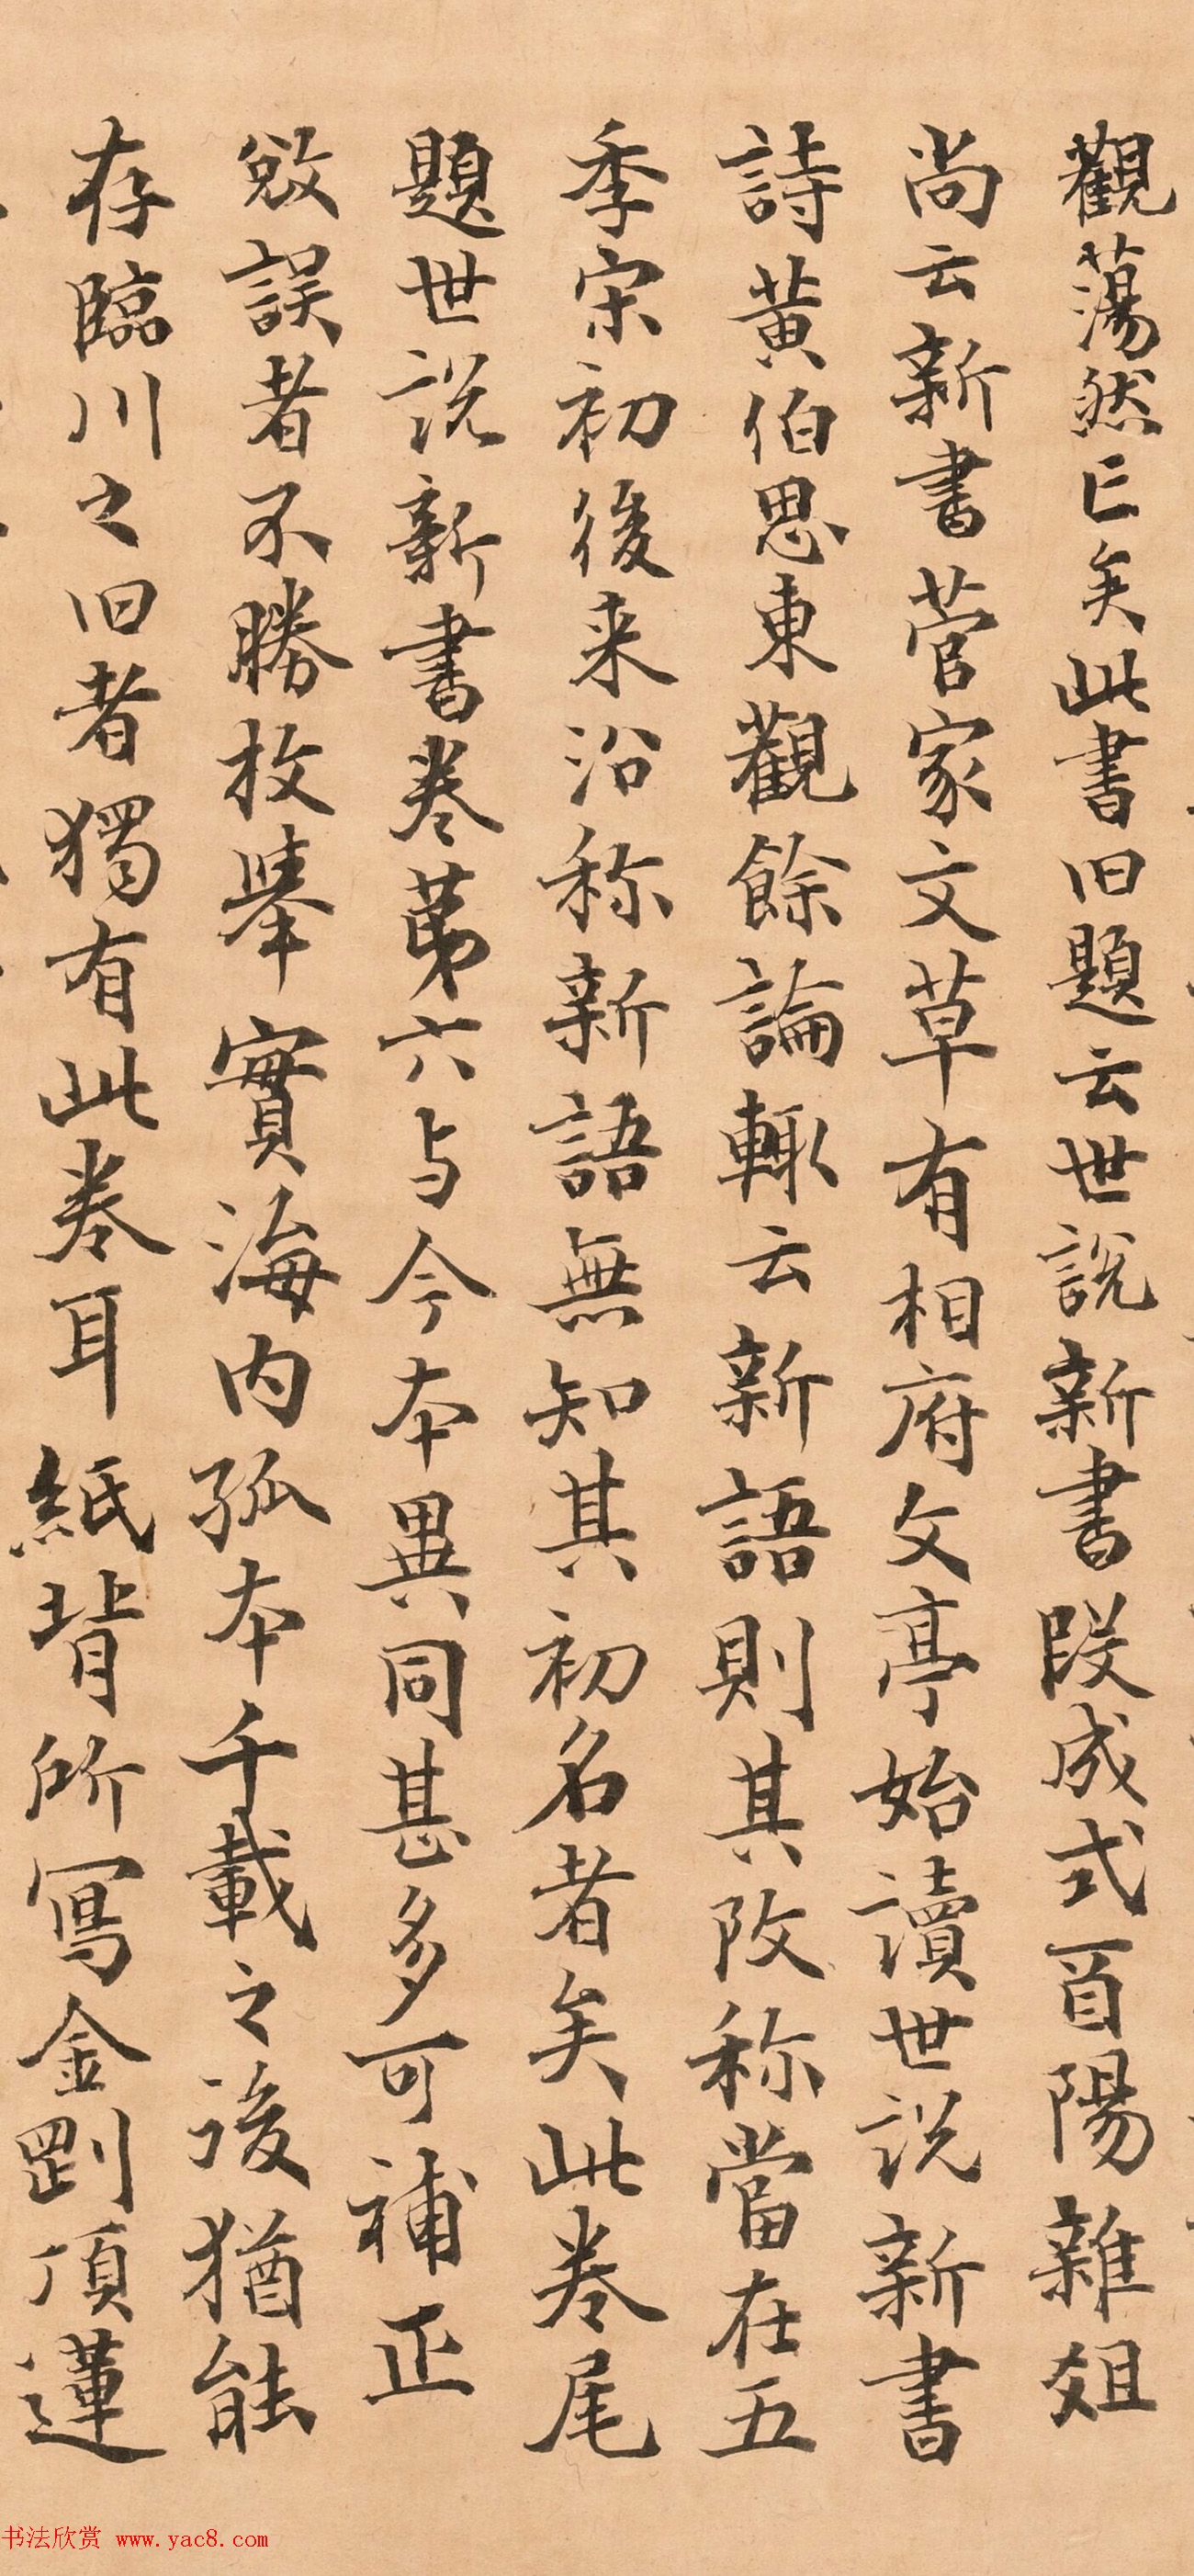 觀蕩然亡矣此書旧題云世說新書段成式酉陽雜俎
尚云新書菅家文草有相府文亭始讀世説新書
詩黄伯思東觀餘論輙云新語則其改称當在五
季宋初後来沿称新語無知其初名者矣此卷尾
題世説新書卷苐六与今本異同甚多可補正
敓誤者不勝枚舉實海内孤本千載之後猶能
存臨川之旧者獨有此卷耳紙背所寫金剛頂蓮
书法欣赏 www.yac8.com